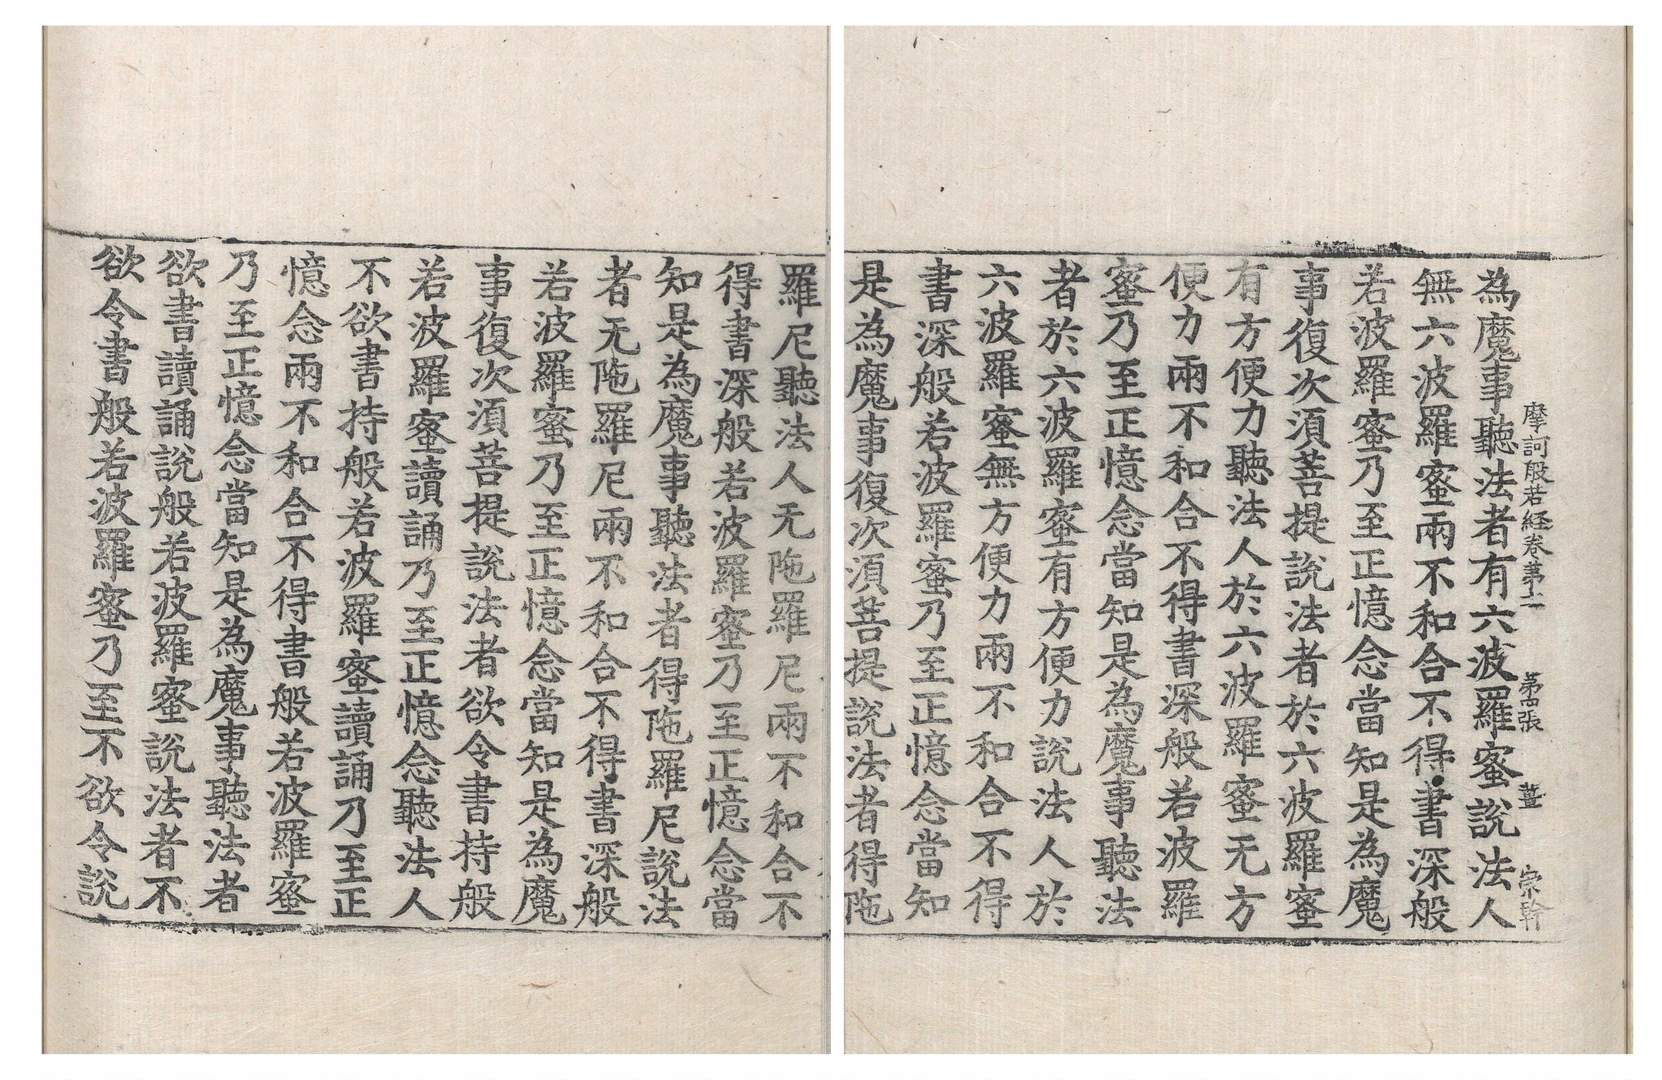 摩訶般若経卷苐 張 薑 宗幹
為魔事聽法者有六波羅蜜說法人
無六波羅蜜兩不和合不得書深般
若波羅蜜乃至正憶念當知是為魔
事復次湏菩提說法者於六波羅蜜
有方便力聽法人於六波羅蜜无方
便力兩不和合不得書深般若波羅
蜜乃至正憶念當知是為魔事聽法
者於六波羅蜜有方便力說法人於
六波羅蜜無方便力兩不和合不得
書深般若波羅蜜乃至正憶念當知
是為魔事復次湏菩提說法者得陁
羅尼聽法人无陁羅尼兩不和合不
得書深般若波羅蜜乃至正憶念當
知是為魔事聽法者得陁羅尼說法
者无陁羅尼兩不和合不得書深般
若波羅蜜乃至正憶念當知是為魔
事復次湏菩提說法者欲令書持般
若波羅蜜讀誦乃至正憶念聽法人
不欲書持般若波羅蜜讀誦乃至正
憶念兩不和合不得書般若波羅蜜
乃至正憶念當知是為魔事聽法者
欲書讀誦說般若波羅蜜說法者不
欲令書般若波羅蜜乃至不欲令說